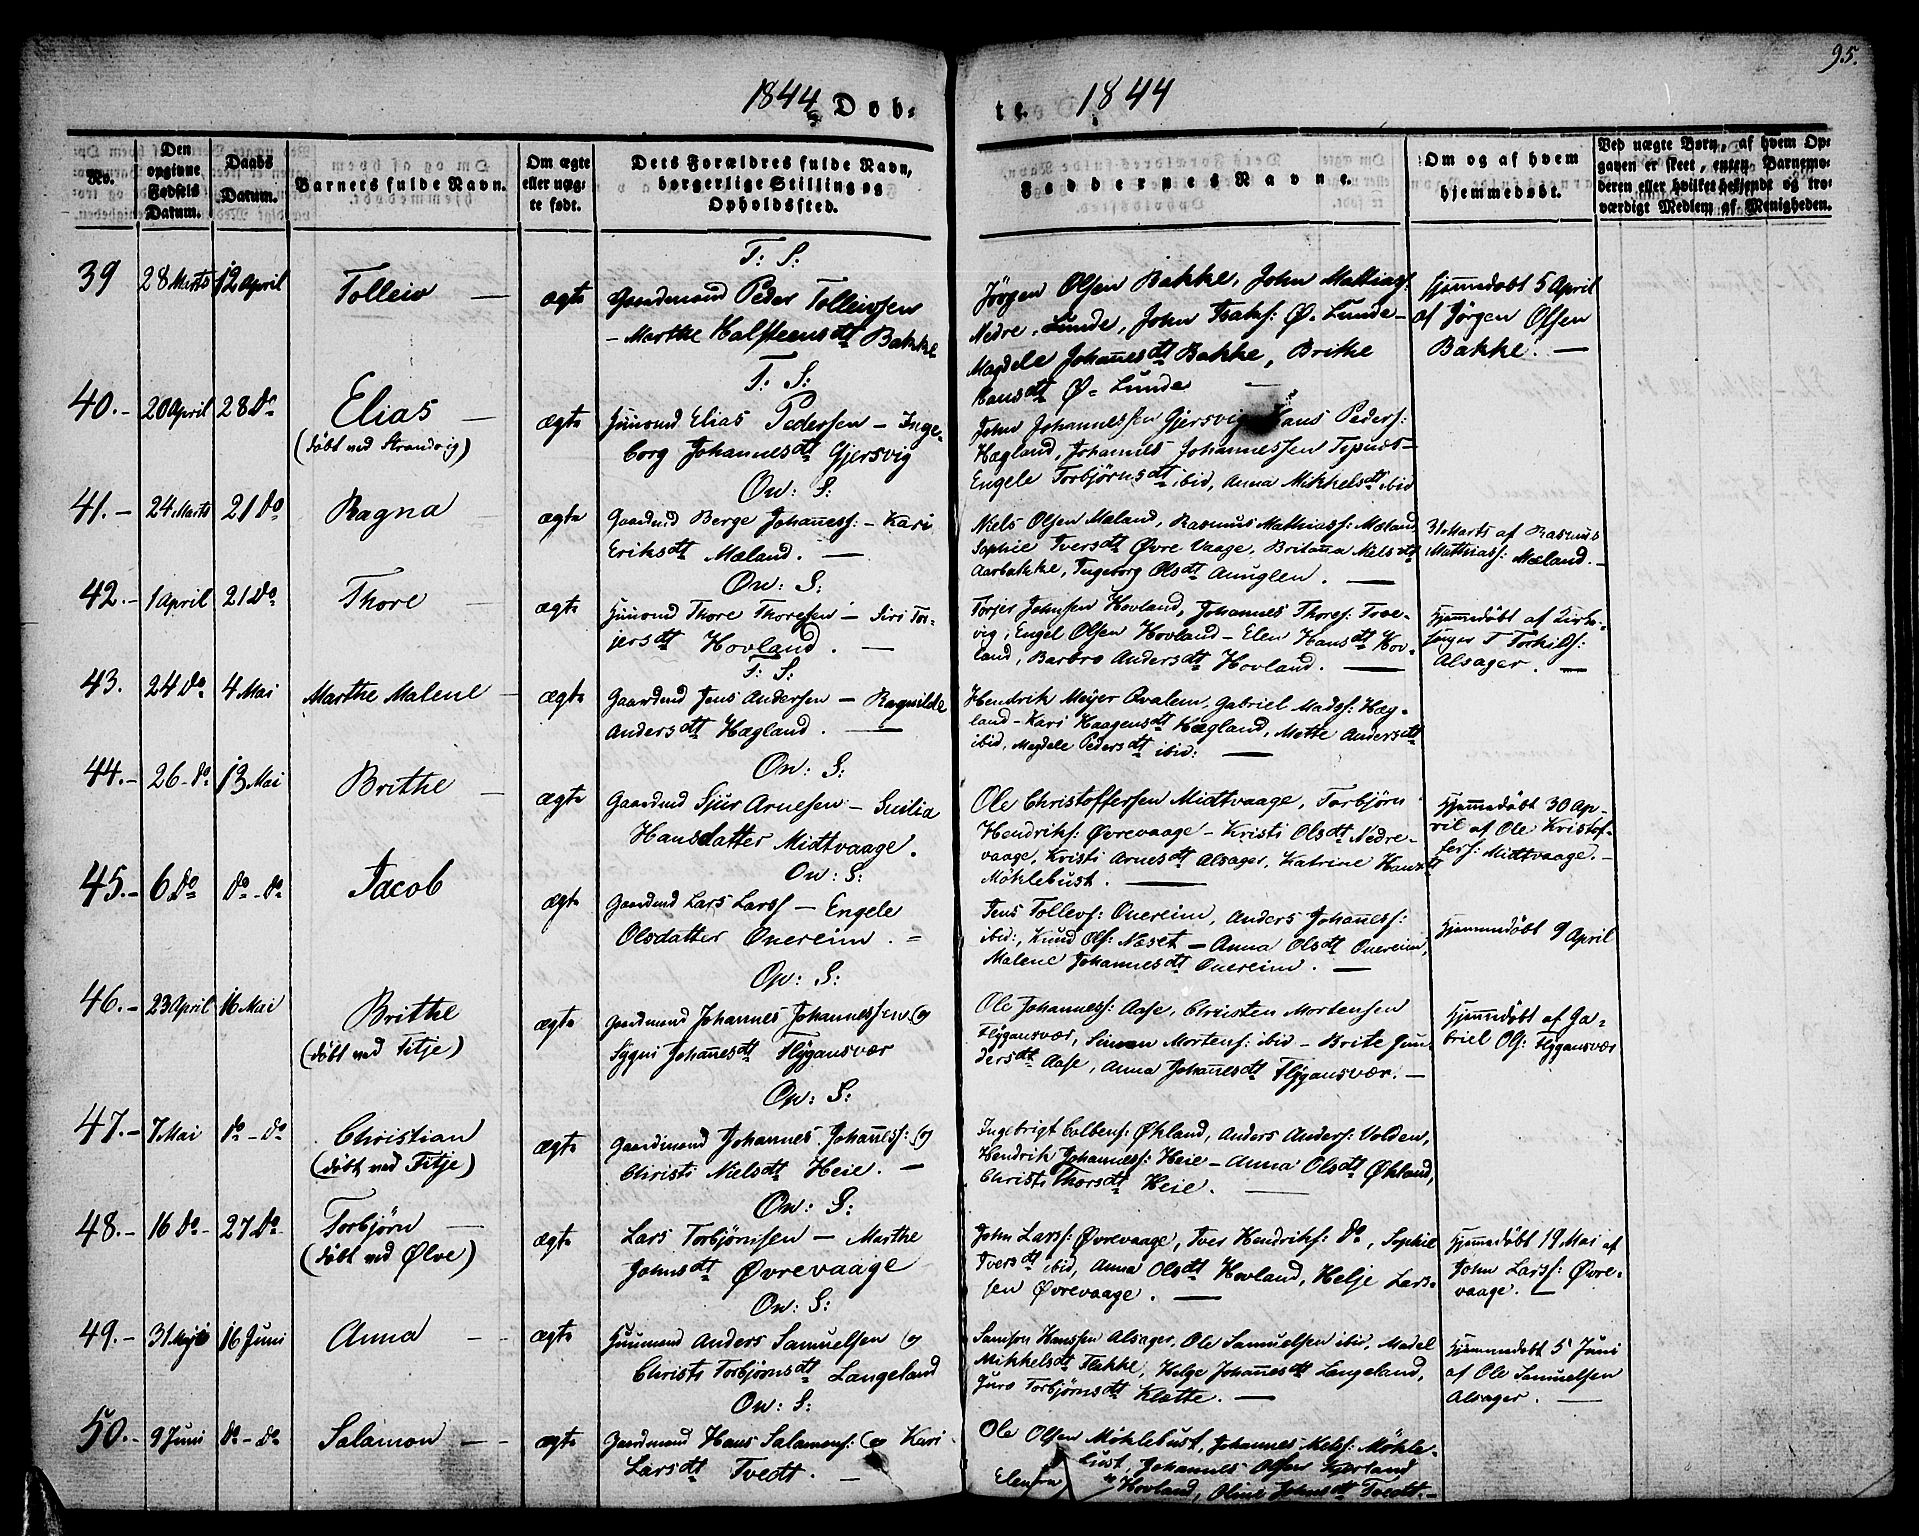 95.
1844 Døb-
te. 1844
No.
Den opgivne Fødsels Datum.
Daabs Datum.
Barnets fulde Navn.
Om ægte eller uægte født.
Dets Forældres fulde Navn, borgerlige Stilling og Opholdssted.
Faddernes Navne.
Om og af hvem hjemmedøbt.
Ved uægte Børn, af hvem Opgaven er skeet, enten Barnemoderen eller hvilket bekjendt og troværdigt Medlem af Menigheden.
T: S:
39 28 Marts 12 April Tolleiv — ægte
Gaardmand Peder Tolleivsen
– Marthe Halsteensdtt Bakke
Jørgen Olsen Bakke, John Mathias:
Nedre Lunde, John Isaks: Ø. Lunde –
Magdele Johannesdt Bakke, Brithe
Hansdt Ø. Lunde —
Hjemmedøbt 5 April
af Jørgen Olsen
Bakke. —
T: S:
40.– 20 April 28 do Elias — ægte
(døbt ved Strandvig)
Huusmd Elias Pedersen – Inge-
borg Johannesdt Gjersvig
John Johannessen Gjersvig, Hans Peders:
Hægland, Johannes Johannessen
Engele Torbjørnsdt ibid, Anna Mikkelsdt ibid
Ow: S:
41.– 24 Marts 21 do Ragna ægte
Gaardmd Berge Johaness: – Kari
Eriksdt Mæland. —
Niels Olsen Mæland, Rasmus Mathiass: Mæland
Sophie Iversdt Øvre Vaage, Britanna Nielsdt
Aarbakke, Ingeborg Olsdt —
31 Marts af Rasmus
Mathiass: Mæland. –
Ow: S:
42.– 1 April 21 do Thore ægte
Huusmd Thore Thoresen – Siri Tor-
jersdt Hovland. —
Torjer Johnsen Hovland, Johannes Thores: Tvee-
vig, Engel Olsen Hovland – Elen Hansdt Hov-
land, Barbro Andersdt Hovland. —
Hjemmedøbt af Kirke-
sanger T Torkils:
Alsager. —
T: S:
43. 24 do 4 Mai Marthe Malene — ægte
Gaardmd Jens Andersen – Ragnilde
Andersdt Hægland. —
Hendrik Meyer Qvalem, Gabriel Madss: Hæg-
land – Kari Haagensdt Hægland, Mette Andersdt
ibid, Magdele Pedersdt ibid: —
Ow: S:
44.– 26 – do 13 Mai Brithe — ægte
Gaardmd Sjur Arnesen –
Hansdatter Midtvaage.
Ole Christoffersen Midtvaage, Torbjørn
Hendriks: Øvrevaage – Kristi Olsdt Nedre-
vaage, Kristi Arnesdt Alsager, Katrine Hansdt
Møhlebust. —
Hjemmedøbt 30 Ap-
ril af Ole Kristof-
fers: Midtvaage. –
Ow: S:
45.– 6 do do – do Jacob ægte
Gaardmd Lars Larss – Engele
Olsdatter Onereim. =
Jens Tollevs: Onereim, Anders Johaness:
ibid:, Knud Ols: Næset – Anna Olsdt Onereim,
Malene Johannesdt Onereim. —
Hjemmedøbt 9 April
Op: S:
46.– 23 April 16 Mai Brithe ægte
(døbt ved Fitje)
Gaardmand Johannes Johannessen og
Sygni Johanesdt Flygansvær
Ole Johanness: Aase, Christen Mortensen
Flygansvær, Simen Mortens: ibid – Brite Gun-
dersdt Aase, Anna Johanesdt Flygansvær. –
Hjemmedøbt af Ga-
briel Ols: Flygansvær
Op: S:
47.– 7 Mai do – do Christian ægte
(døbt ved Fitje)
Gaardmand Johannes Johaness: og
Christi Nielsdt Heie. –
Ingebrigt Colbens: Økland, Anders Anders: Volden,
Hendrik Johaness: Heie – Anna Olsdt Økland,
Christi Thorsdt Heie. —
Ow: S:
48.– 16 do – 27 do – Torbjørn — ægte
(døbt ved Ølve)
Lars Torbjørnsen – Marthe
Johnsdt Øvrevaage
John Larss: Øvrevaage, Iver Hendriks: do, Sophie
Iversdt ibid, Anna Olsdt Hovland, Helje Lars-
sen Øvrevaage. —
Hjemmedøbt 19 Mai af
John Larss: Øvre-
vaage. —
Ow: S:
49.– 31 Maji 16 Juni Anna – – ægte
Huusmand Anders Samuelsen og
Christi Torbjørnsdt Langeland
Samson Hanssen Alsager, Ole Samuelsen ibid, Madel
Mikkelsdt Flakke, Helge Johanesdt Langeland,
Guro Torbjørnsdt Klætte. —
Hjemmedøbt 5 Juni
af Ole Samuelsen
Alsager. —
Ow: S:
50.– 9 Juni do – do Salamon – – ægte
Gaardmand Hans Salamons: og Kari
Larsdt Tvedt. –
Ole Olsen Møhlebust, Johannes Nels: Møhle-
bust, Johannes Olsen
Hovland, Oline Johnsdt Tvedt. –